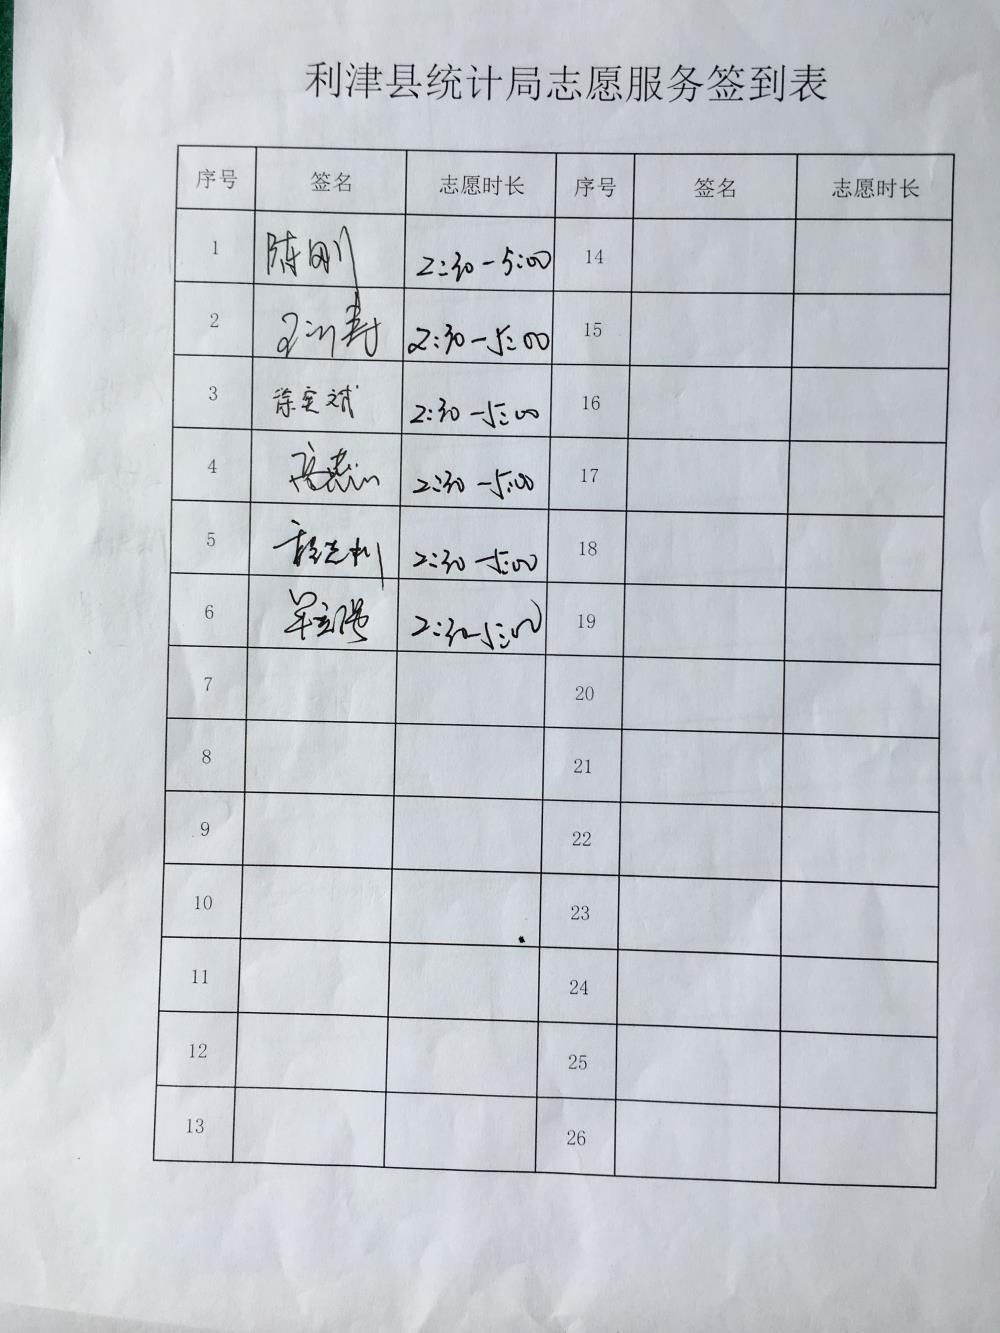 利津县统计局志愿服务签到表
序号 签名 志愿时长 序号 签名 志愿时长
1 陈刚 2:30-5:00 14
2 2:30-5:00 15
3 徐奎斌 2:30-5:00 16
4 2:30-5:00 17
5 2:30-5:00 18
6 2:30-5:00 19
7 20
8 21
9 22
10 23
11 24
12 25
13 26